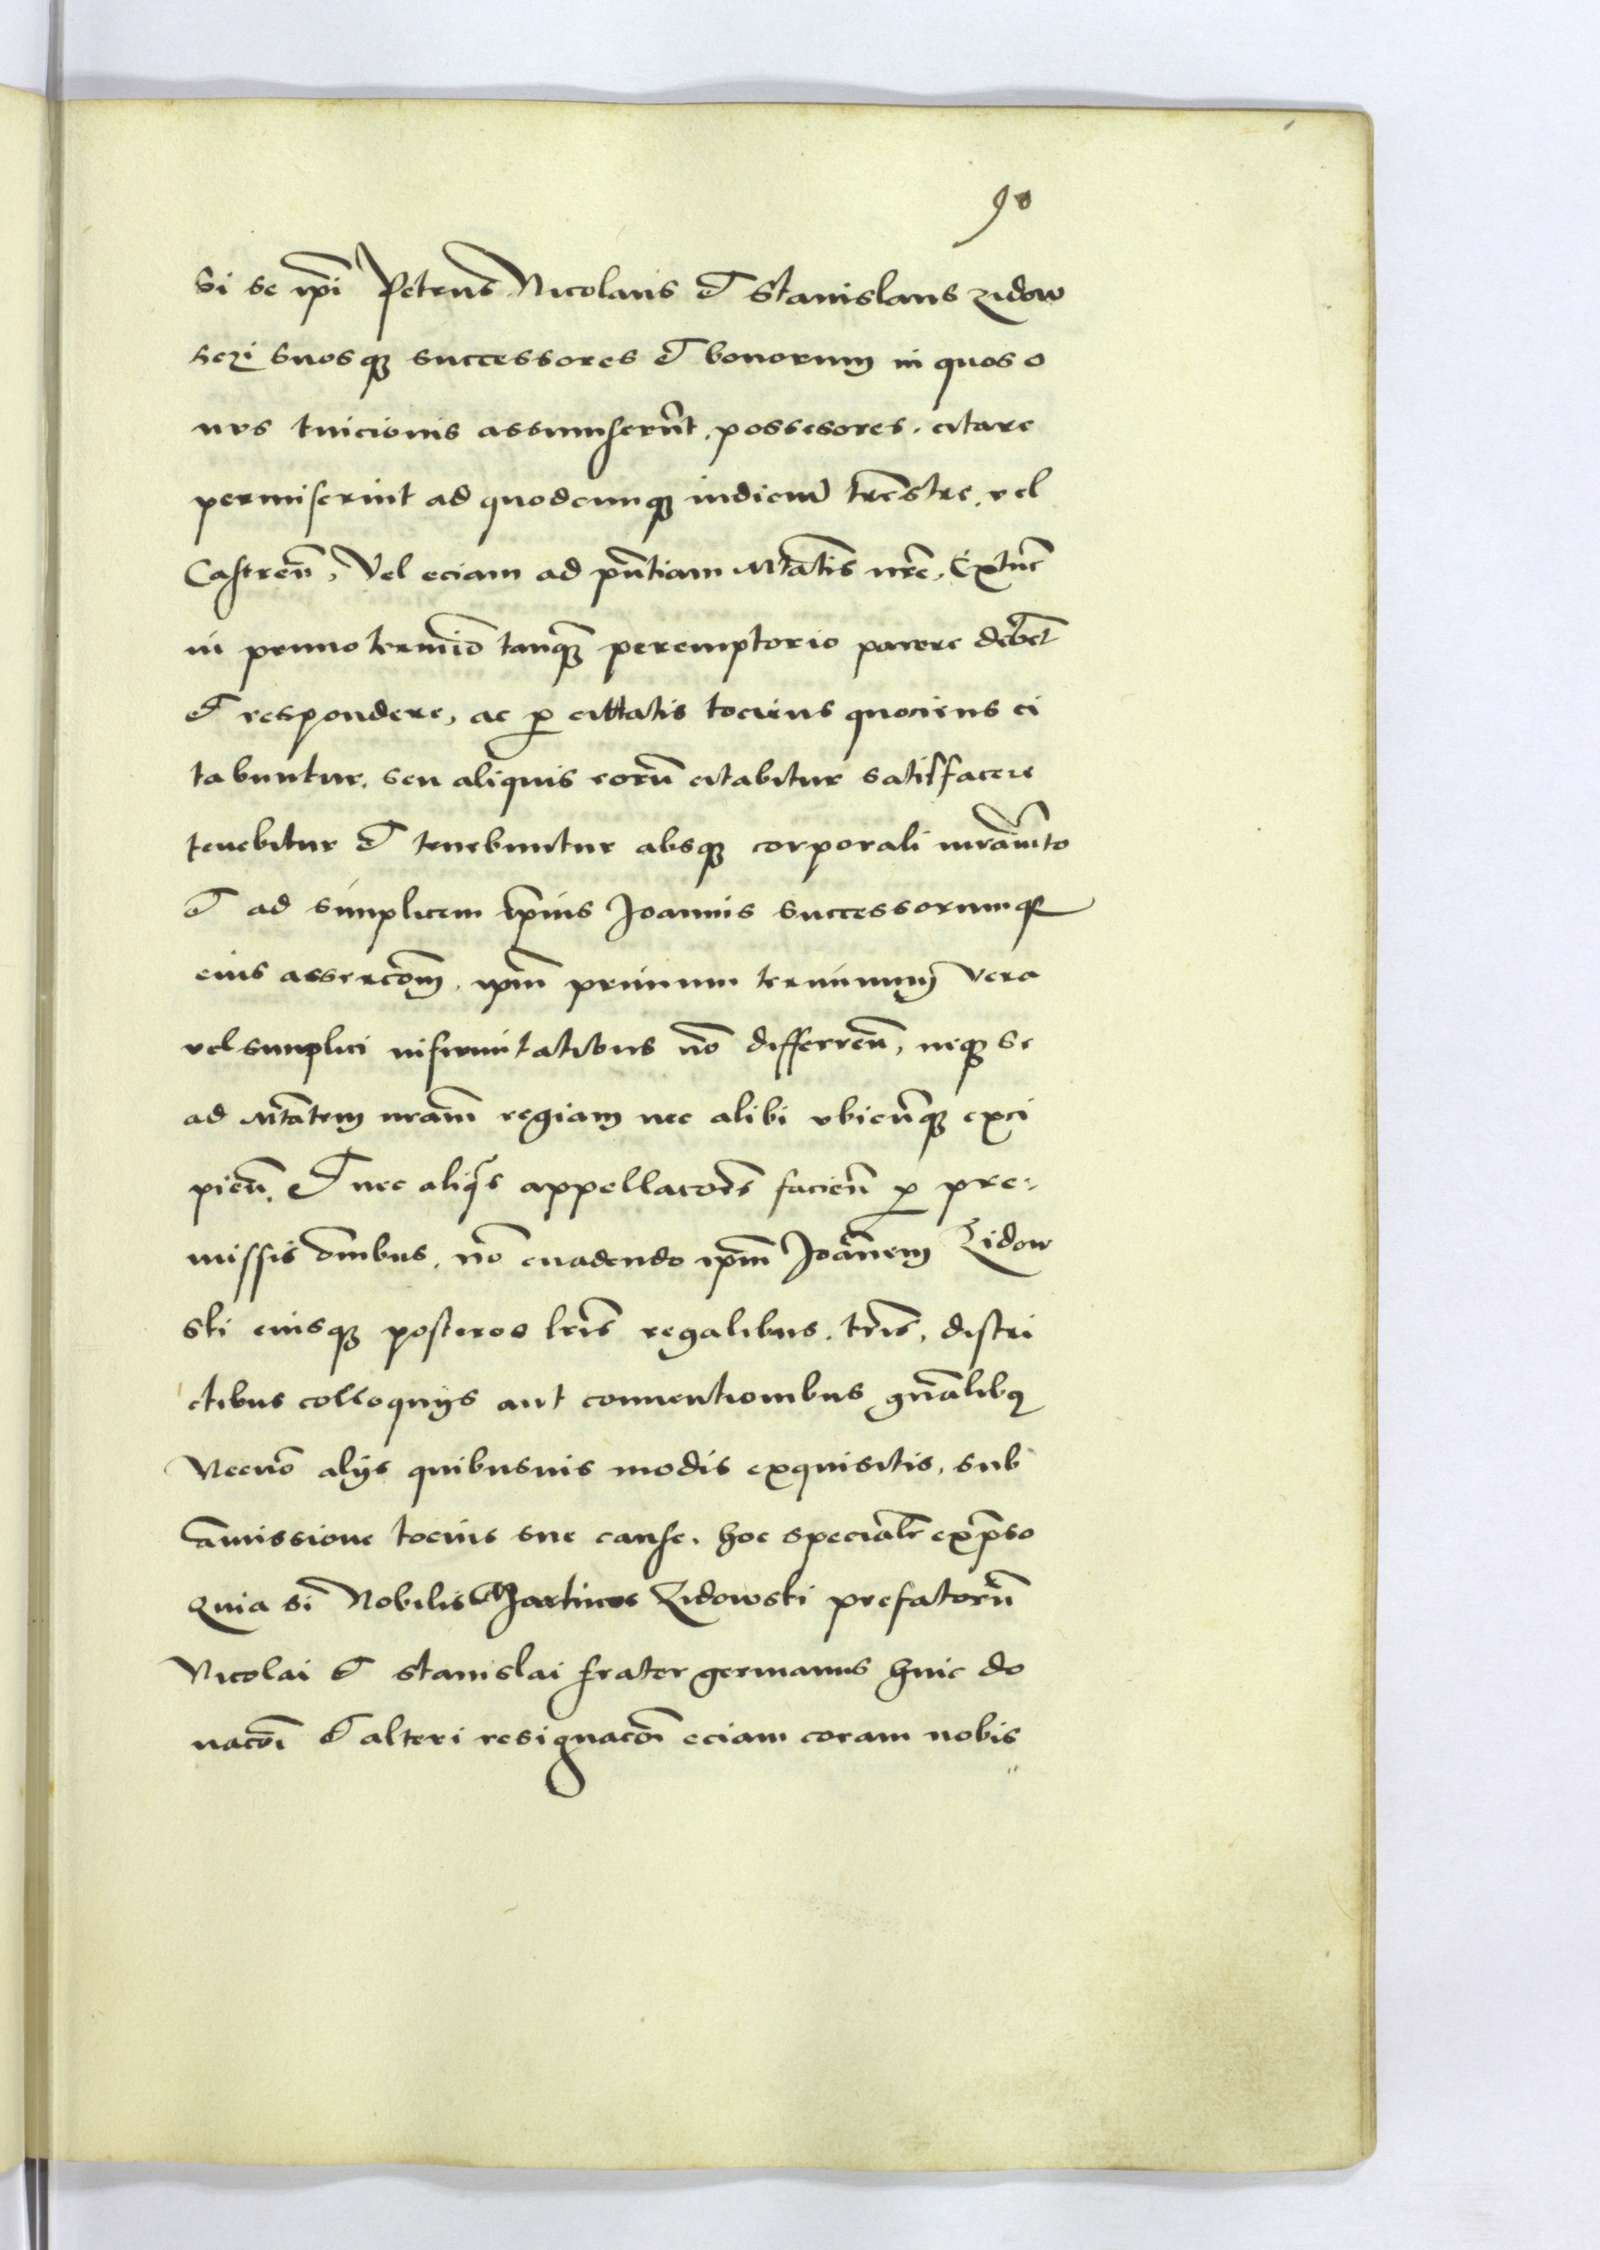 90
Si se ip̃i Petrus Nicolaus et Stanislaus Zidow
sczi suosq̃ successores et bonorum in quos o
nus tuicionis assumserũt, possesores, citare
permiserint ad quodcumq̃ iudiciũ trẽstre, vel
Castreñ, Vel eciam ad pñtiam Mtatis nrẽ, Extũc
in primo termĩo tanq̃ peremptorio parere debẽt
et respondere, ac p̱ citatis tociens quociens ci
tabuntur, seu aliquis eorũ citabitur satisfacere
tenebitur et tenebuntur absq̃ corporali iuramẽto
et ad simplicem ip̃ius Joannis successorumq̃
eius assercõm, ip̃m primum terminum vera
vel simplici infirmitatibus nõ differreñ, neq̃ se
ad Mtatem nrãm regiam nec alibi vbicũq̃ exci
pieñ, et nec aliq̃s appellacões facieñ p̱ pre-
missis õmbus, nõ euadendo ip̃m Joãnem Zidow
ski eiusq̃ posteros lrĩs regalibus, trĩs, distri
ctibus colloquijs aut conuentionibus gñalibꝫ
Necnõ alijs quibusuis modis exquisitis, sub
amissione tocius sue cause, hoc speciãlr exp̃sso
Quia si Nobilis Martinus Zidowski prefatorũ
Nicolai et Stanislai frater germanus huic do
nacõi et alteri resignacõi eciam coram nobis